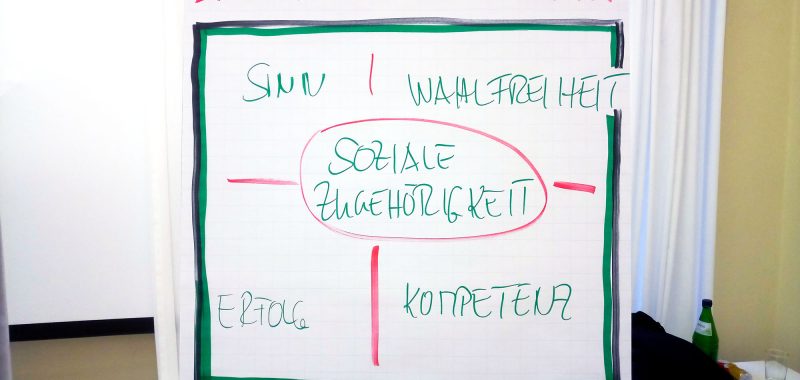 SINN
WAHLFREIHEIT
SOZIALE
ZUGEHÖRIGKEIT
ERFOLG
KOMPETENZ